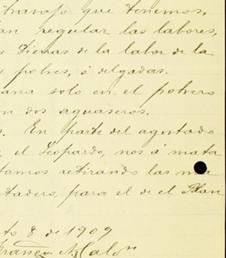 trabajo que tenemos,
an regular las labores,
s tierras de la labor de la
y pobres, ó delgadas.
ana solo en el potrero
n dos aguaseros.
. En parte del agostado
el Leopardo, nos á mata
tamos retirando las
tadero, para el de el Plan
to 8 de 1909